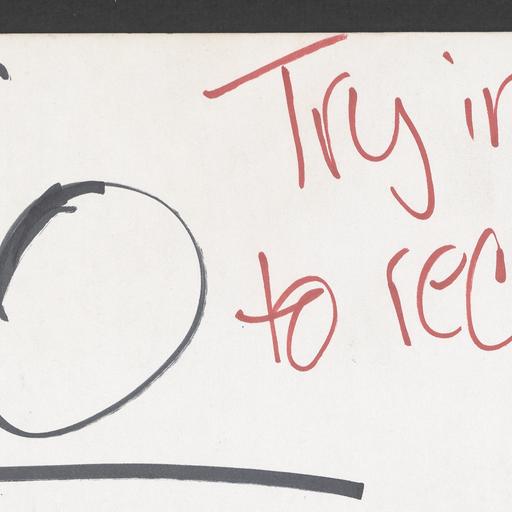 Try in
to rec